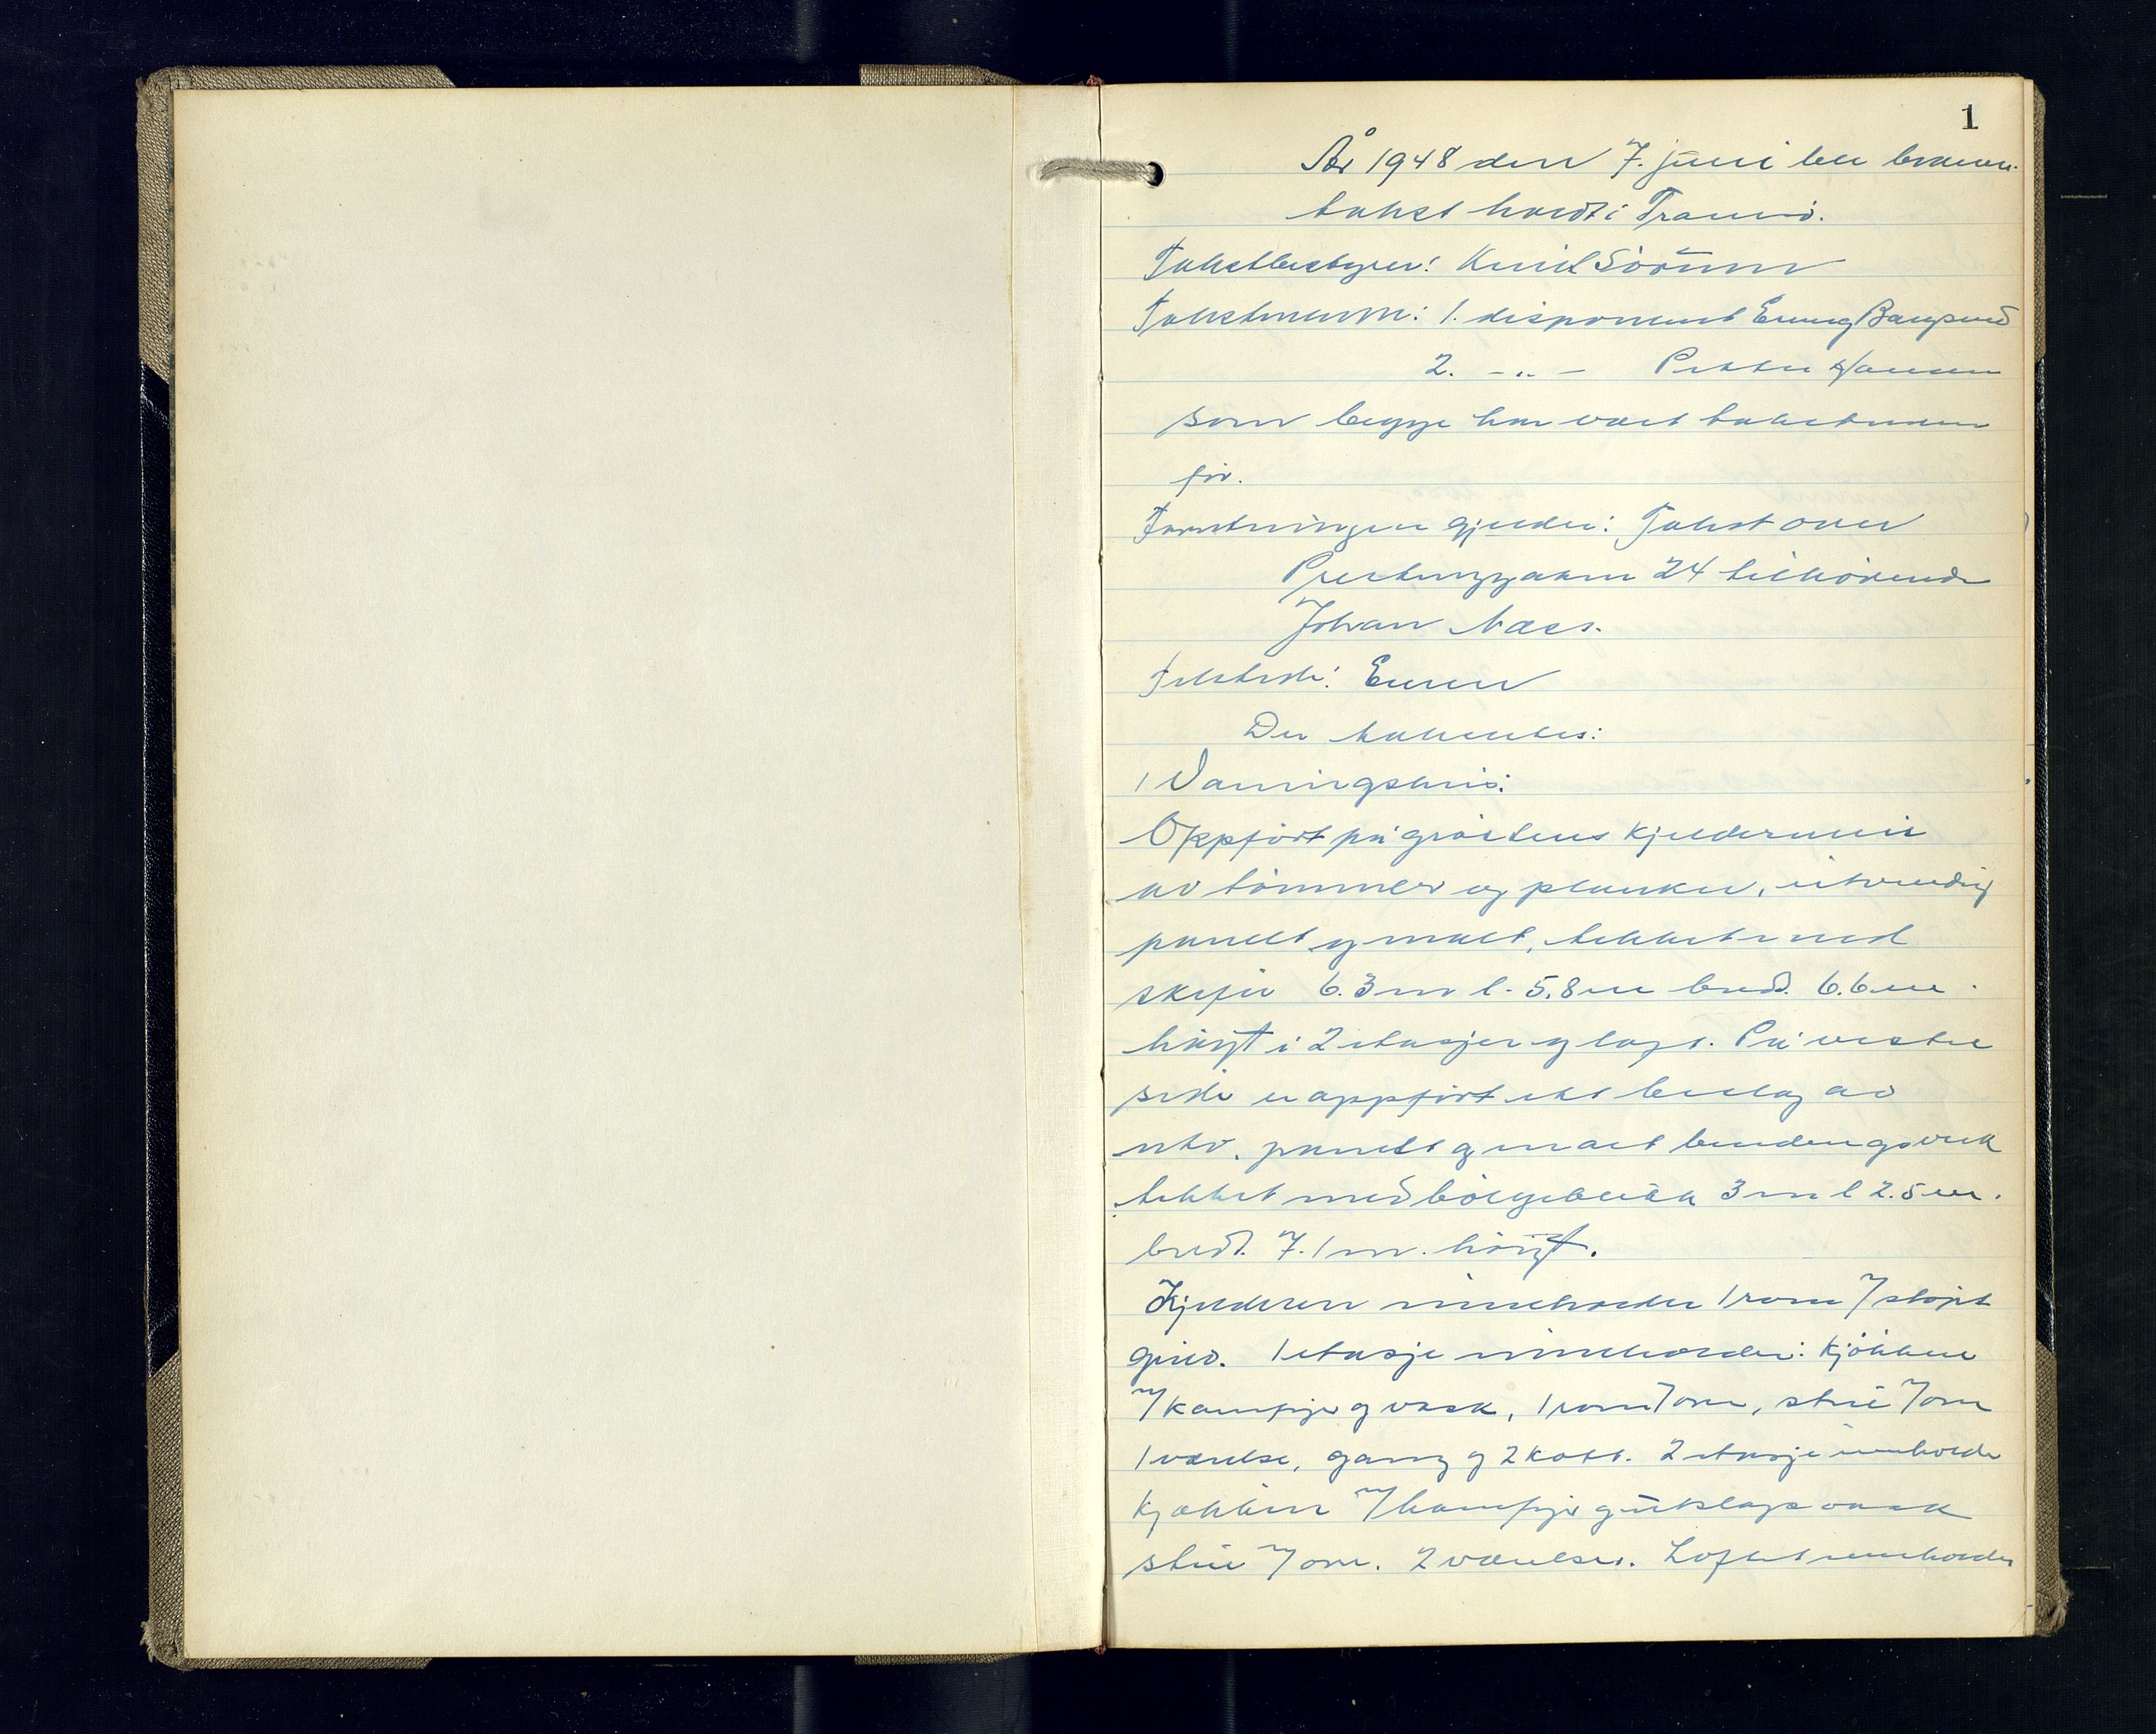 1
År 1948 den 7. juni ble brann-
takst holdt i Tromsö.
Takstbestyrer: Knut Sörum
Takstmenn: 1. disponent Erling Bangsund
2. -"- Petter Hansen
som begge har vært takstmenn
för.
Forretningen gjelder: Takst over
Prestenggaten 24 tilhörende
Johan Næss.
Tilstede: Eieren
Der takseredes:
1 Våningshus:
Oppfört på gråstens kjeldermur
av tömmer og planker, utvendig
panelt og malt, tekket med
skifer 6.3 m l. 5.8 m bred. 6.6 m.
höyt i 2 etasjer og loft. På vestre
side er oppfört ett beslag av
utv. panelt og malt bindingsverk
tekket med bölgeblikk 3 m l 2.5 m.
bred. 7.1 m. höyt.
Kjelderen inneholder 1 rom m/ stöpt
gulv. 1 etasje inneholder: kjökken
m/ komfyr og vask, 1 rom m/ ovn, stue m/ ovn
1 værelse, gang og 2 kott. 2 etasje inneholder
kjökken m/ komfyr og utslagsvask
stue m/ ovn. 2 værelser. Loftet inneholder